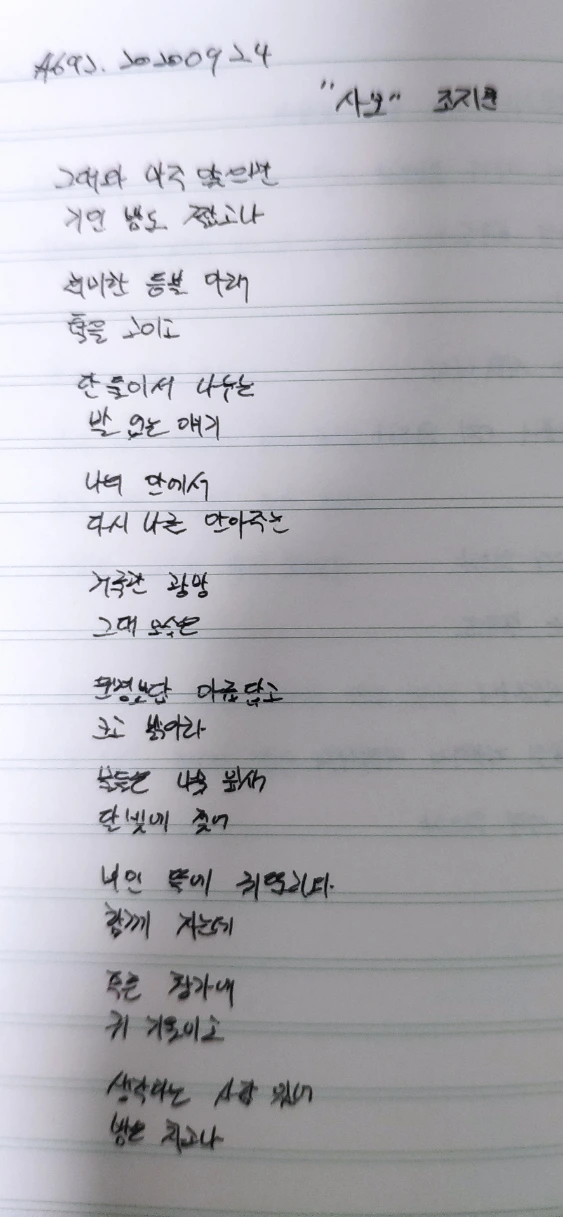 A692. 20200924
"사모" 조지훈
그대와 마주 앉으면
기인 밤도 짧고나
희미한 등불 아래
턱을 고이고
단 둘이서 나누는
말 없는 얘기
나의 안에서
다시 나를 안아주는
거룩한 광망
그대 모습은
운명보담 아름답고
크고 밝아라
물들은 나무 잎새
달빛에 젖어
비인 뜰에 귀뚜리와
함께 자는데
푸른 창가에
귀 기울이고
생각하는 사람 있어
밤은 차고나